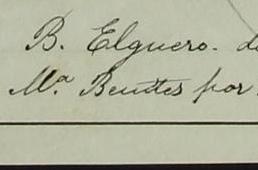 B. Elguero. de
Mª Benites por